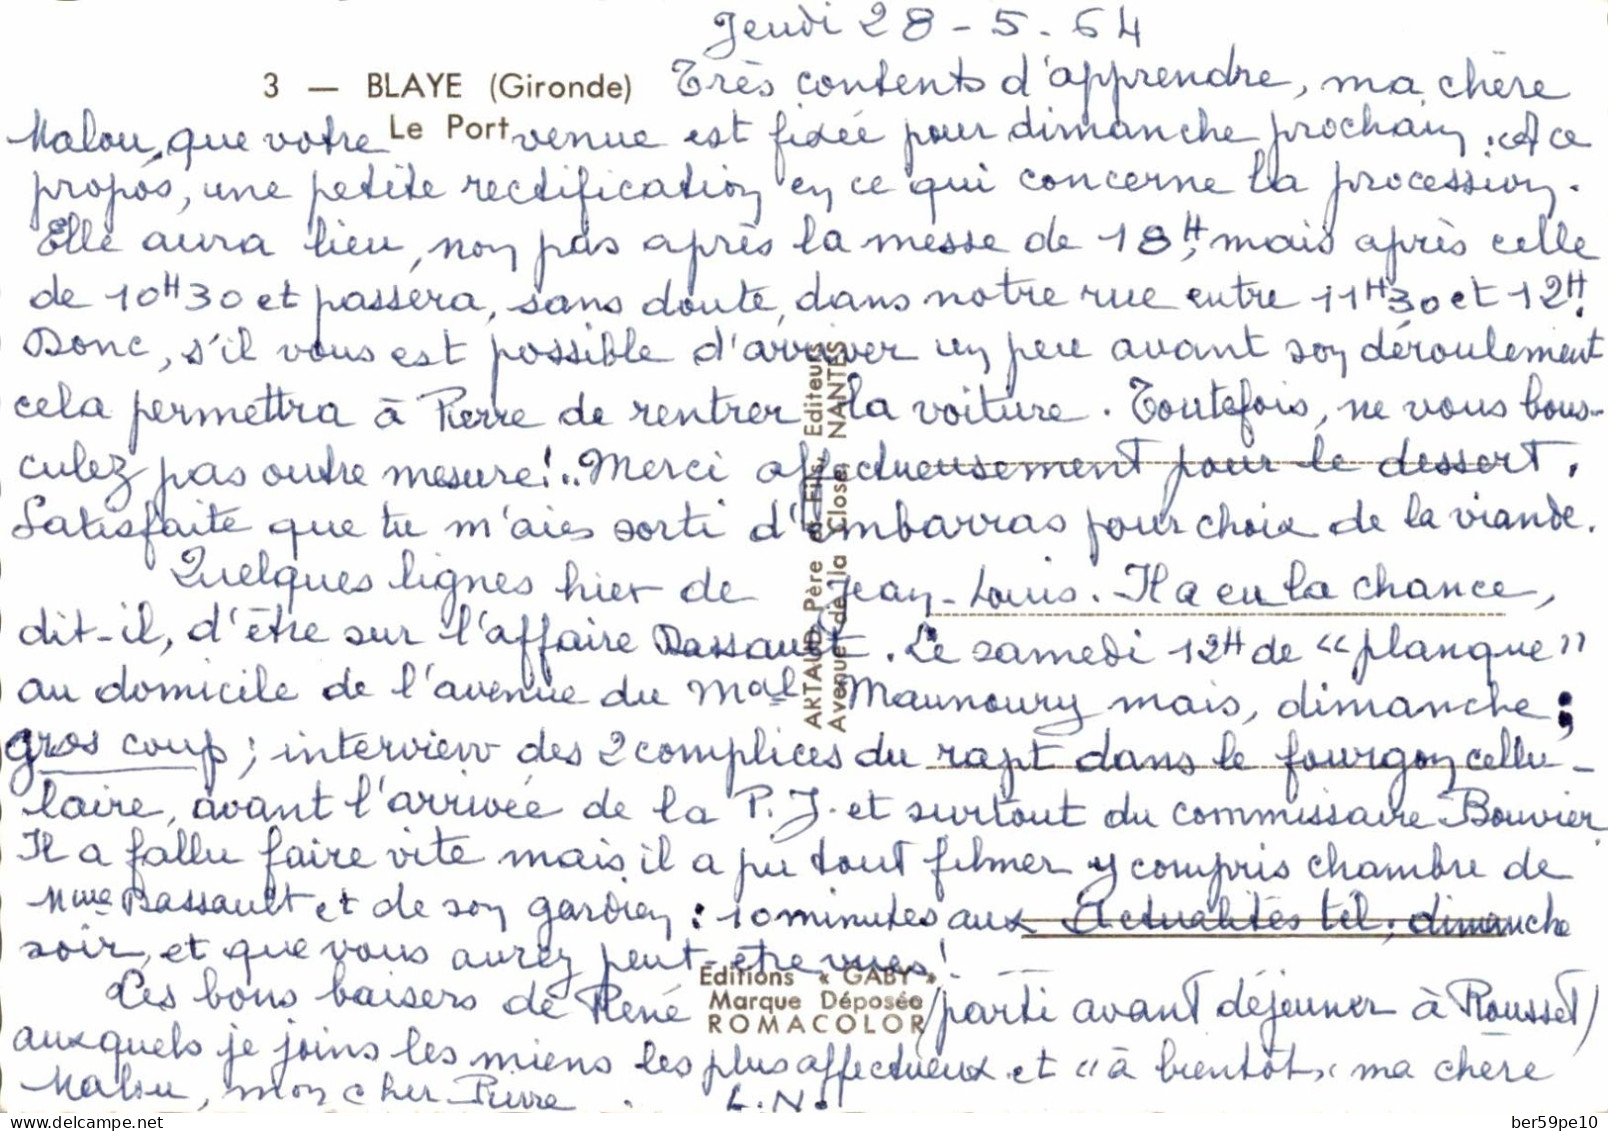 Jeudi 28-5-64
3 — BLAYE (Gironde) Très contents d'apprendre, ma chère
Le Port
Malou, que votre venue est fixée pour dimanche prochain. A ce
propos, une petite rectification en ce qui concerne la procession.
Elle aura lieu, non pas après la messe de 18H, mais après celle
de 10H30 et passera, sans doute, dans notre rue entre 11H30 et 12H.
Donc, s'il vous est possible d'arriver un peu avant son déroulement
cela permettra à Pierre de rentrer la voiture. Toutefois, ne vous bous-
culez pas outre mesure!.. Merci affectueusement pour le dessert.
Satisfaite que tu m'aies sorti d'embarras pour choix de la viande.
Quelques lignes hier de Jean-Louis. Il a eu la chance,
dit-il, d'être sur l'affaire Dassault. Le samedi 12H de « planque »
au domicile de l'avenue du Mal Maunoury mais, dimanche :
gros coup ; interview des 2 complices du rapt dans le fourgon cellu-
laire, avant l'arrivée de la P.J. et surtout du commissaire Bouvier.
Il a fallu faire vite mais il a pu tout filmer y compris chambre de
Mme Dassault et de son gardien : 10 minutes aux Actualités tél. dimanche
soir, et que vous aurez peut-être vues!
Les bons baisers de René (parti avant déjeuner à Rousset)
auxquels je joins les miens les plus affectueux et « à bientôt » ma chère
Malou, mon cher Pierre. L.N.
ARTAUD Père et Fils, Editeurs
Avenue de la Close, NANTES
Editions « GABY »
Marque Déposée
ROMACOLOR
ber59pe10